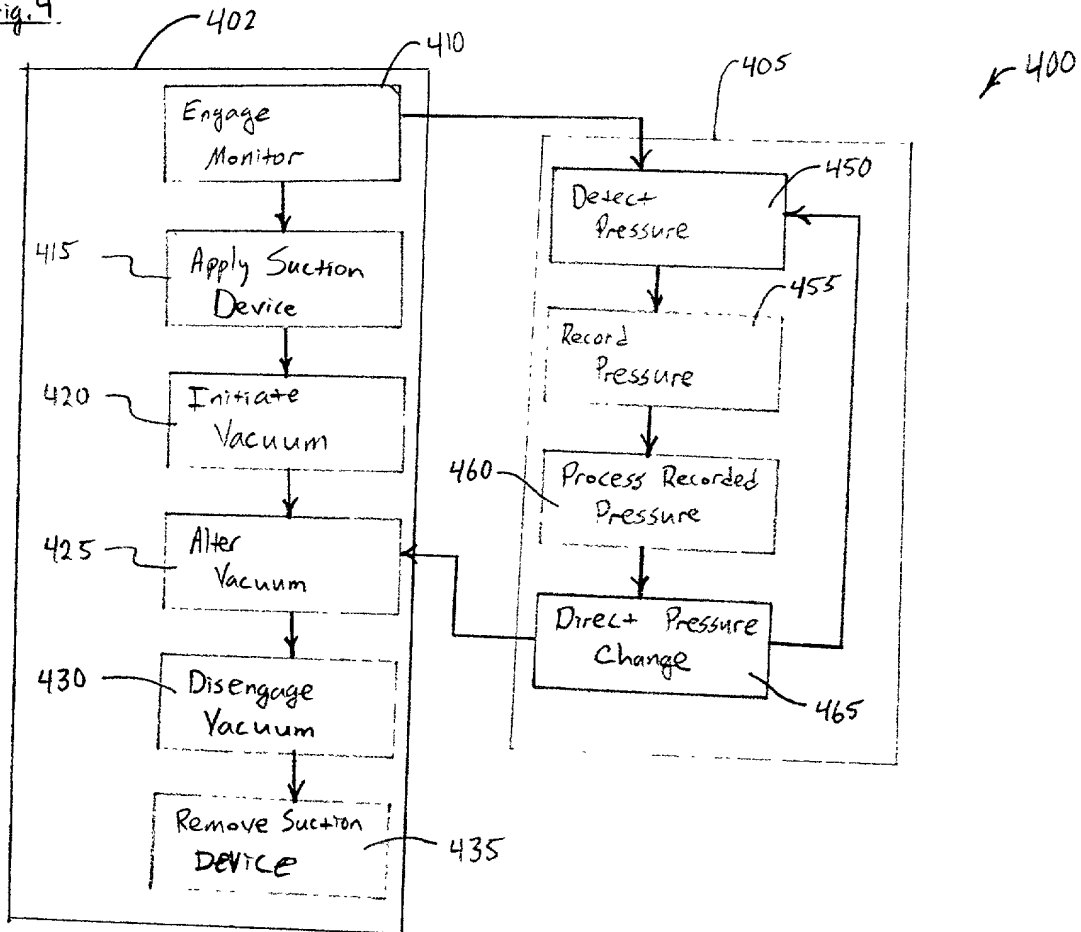 Fig. 4
402
410
Engage
Monitor
415
Apply Suction
Device
420
Initiate
Vacuum
425
Alter
Vacuum
430
Disengage
Vacuum
Remove Suction
DEVICE
435
405
400
450
Detect
Pressure
455
Record
Pressure
460
Process Recorded
Pressure
Direct Pressure
Change
465